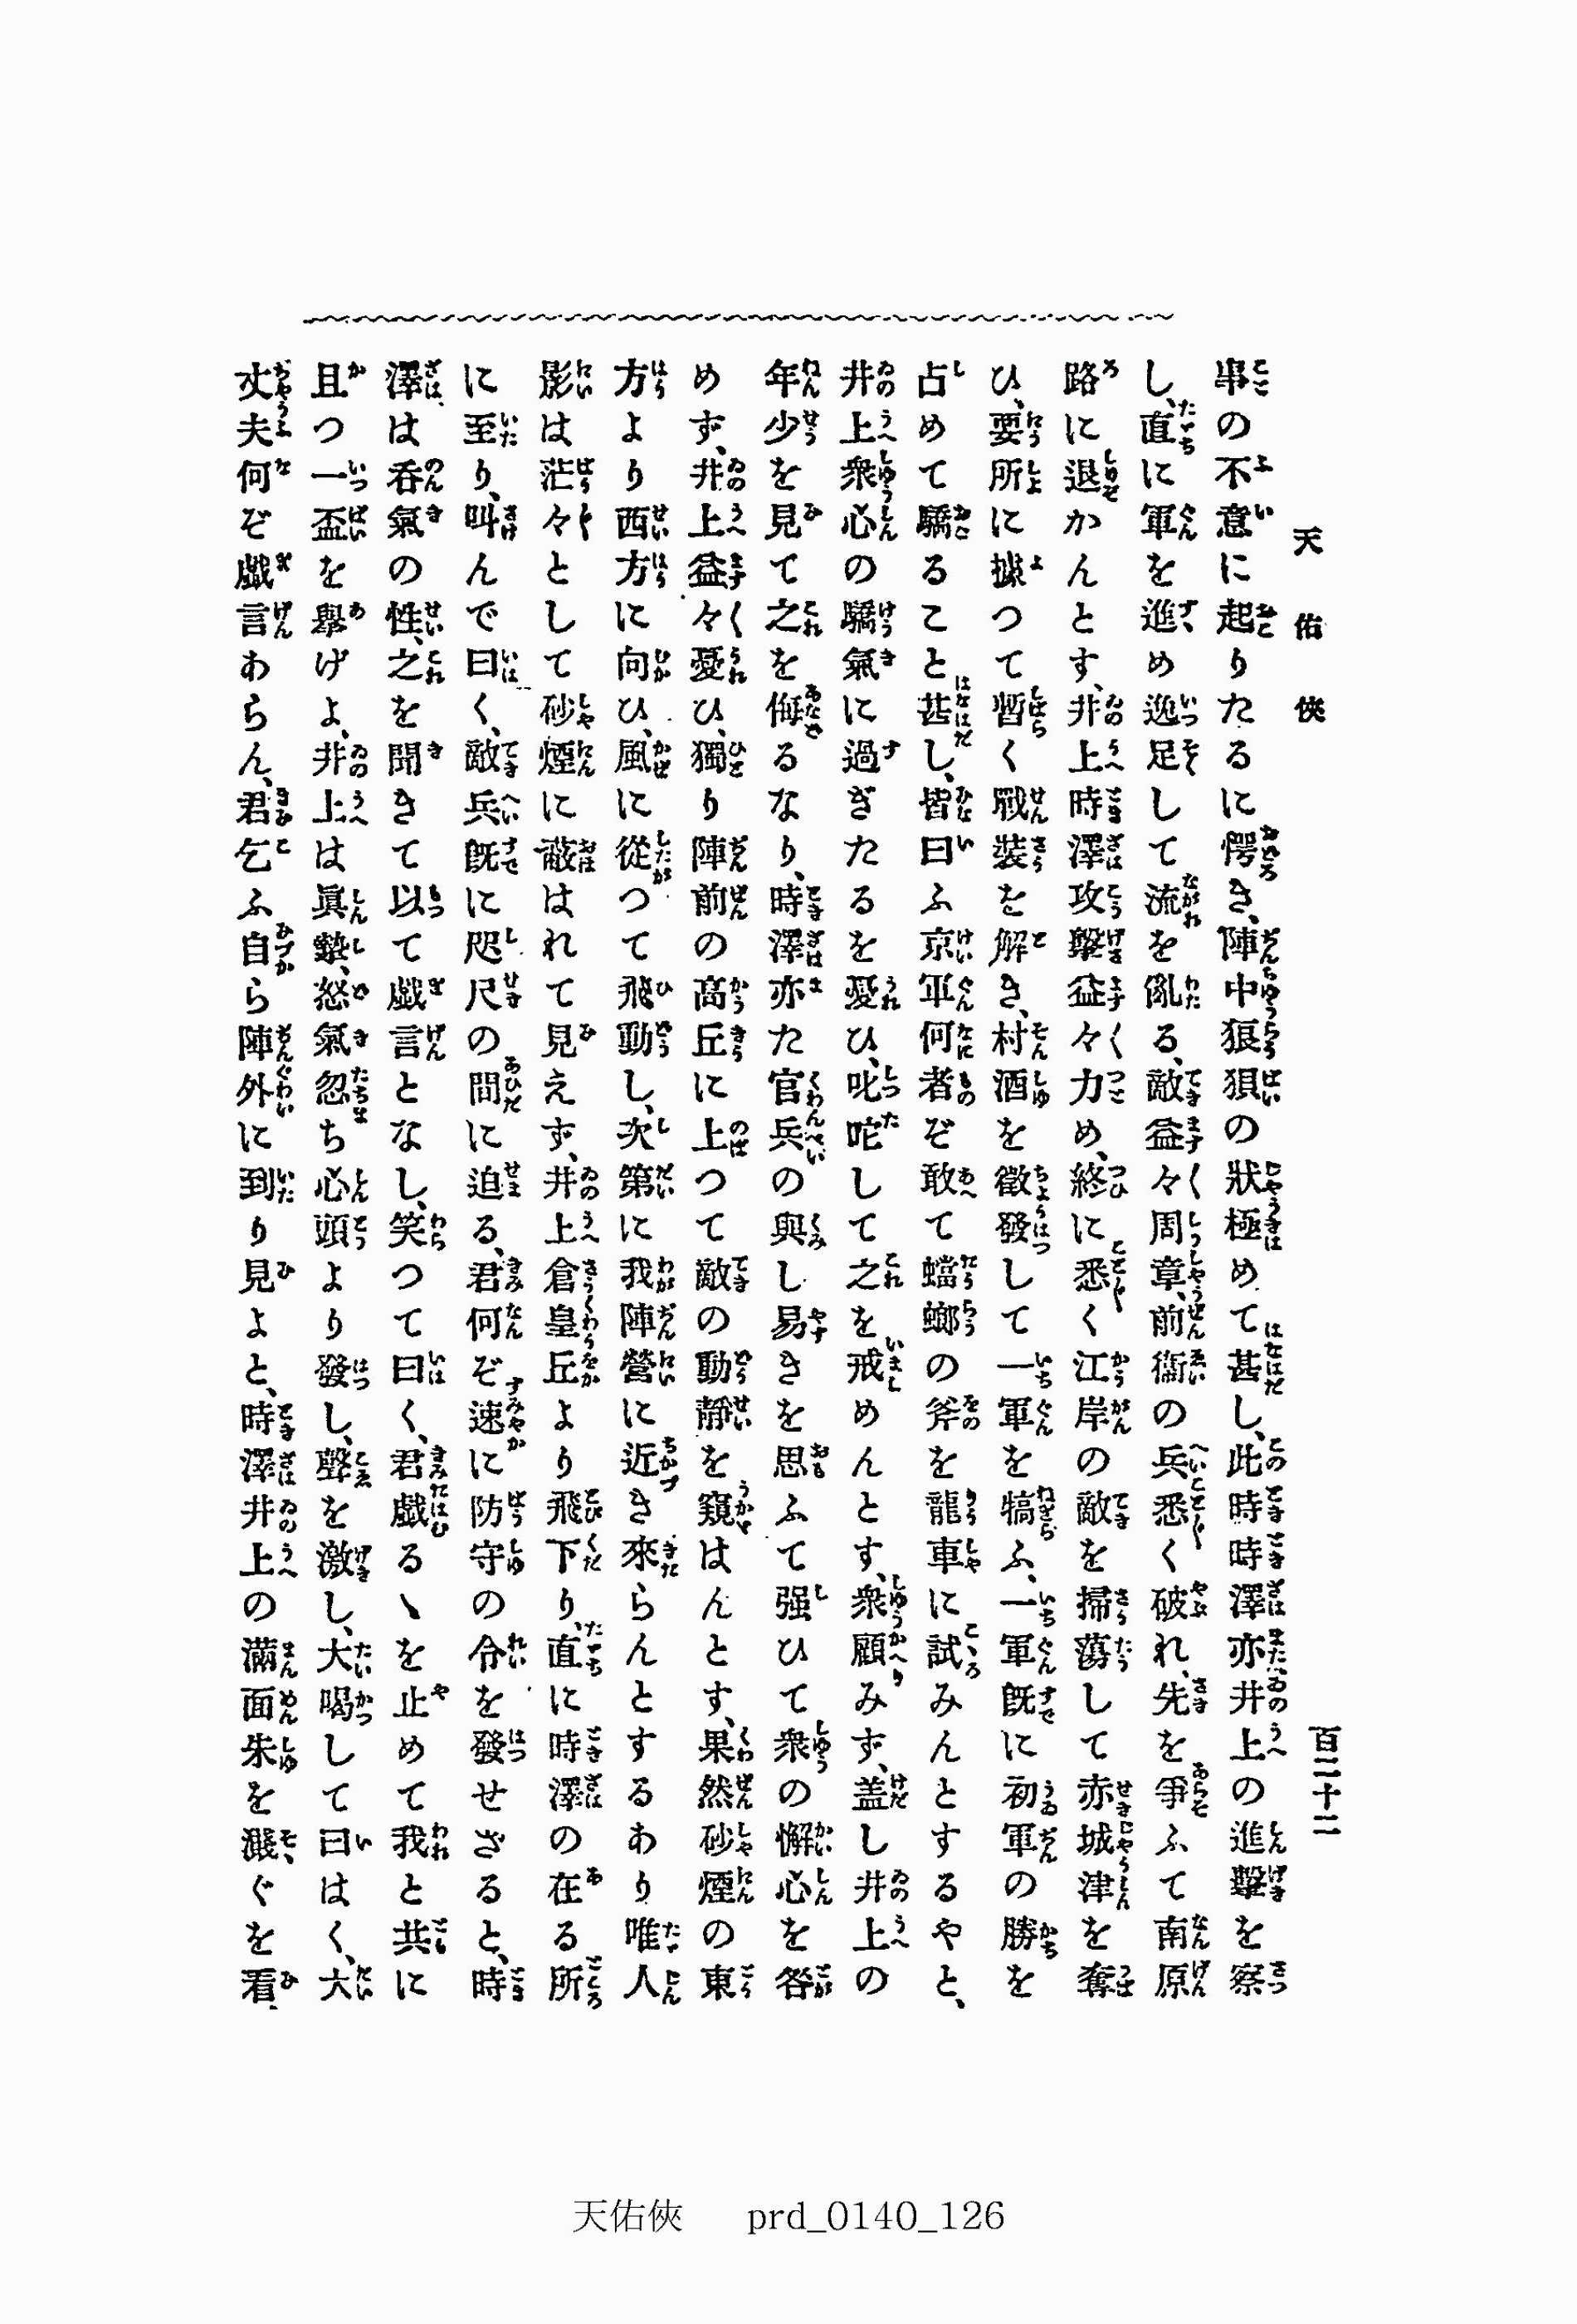 天佑俠
百二十二
事の不意に起りたるに愕き、陣中狼狽の狀極めて甚し、此時時澤亦井上の進擊を察
し、直に軍を進め逸足して流を亂る、敵益々周章、前衞の兵悉く破れ、先を爭ふて南原
路に退かんとす、井上時澤攻擊益々力め、終に悉く江岸の敵を掃蕩して赤城津を奪
ひ、要所に據つて暫く戰裝を解き、村酒を徵發して一軍を犒ふ、一軍既に初軍の勝を
占めて驕ること甚し、皆曰ふ京軍何者ぞ敢て蟷螂の斧を龍車に試みんとするやと、
井上衆心の驕氣に過ぎたるを憂ひ、叱咜して之を戒めんとす、衆顧みず、盖し井上の
年少を見て之を侮るなり、時澤亦た官兵の與し易きを思ふて强ひて衆の懈心を咎
めず、井上益々憂ひ、獨り陣前の高丘に上つて敵の動靜を窺はんとす、果然砂煙の東
方より西方に向ひ、風に從つて飛動し、次第に我陣營に近き來らんとするあり唯人
影は茫々として砂煙に蔽はれて見えず、井上倉皇丘より飛下り、直に時澤の在る所
に至り、叫んで曰く、敵兵既に咫尺の間に迫る、君何ぞ速に防守の令を發せざると、時
澤は呑氣の性、之を聞きて以て戲言となし、笑つて曰く、君戲るゝを止めて我と共に
且つ一盃を擧げよ、井上は眞摯、怒氣忽ち心頭より發し、聲を激し、大喝して曰はく、大
丈夫何ぞ戲言わらん、君乞ふ自ら陣外に到り見よと、時澤井上の滿面朱を濺ぐを看、
天佑俠 prd_0140_126